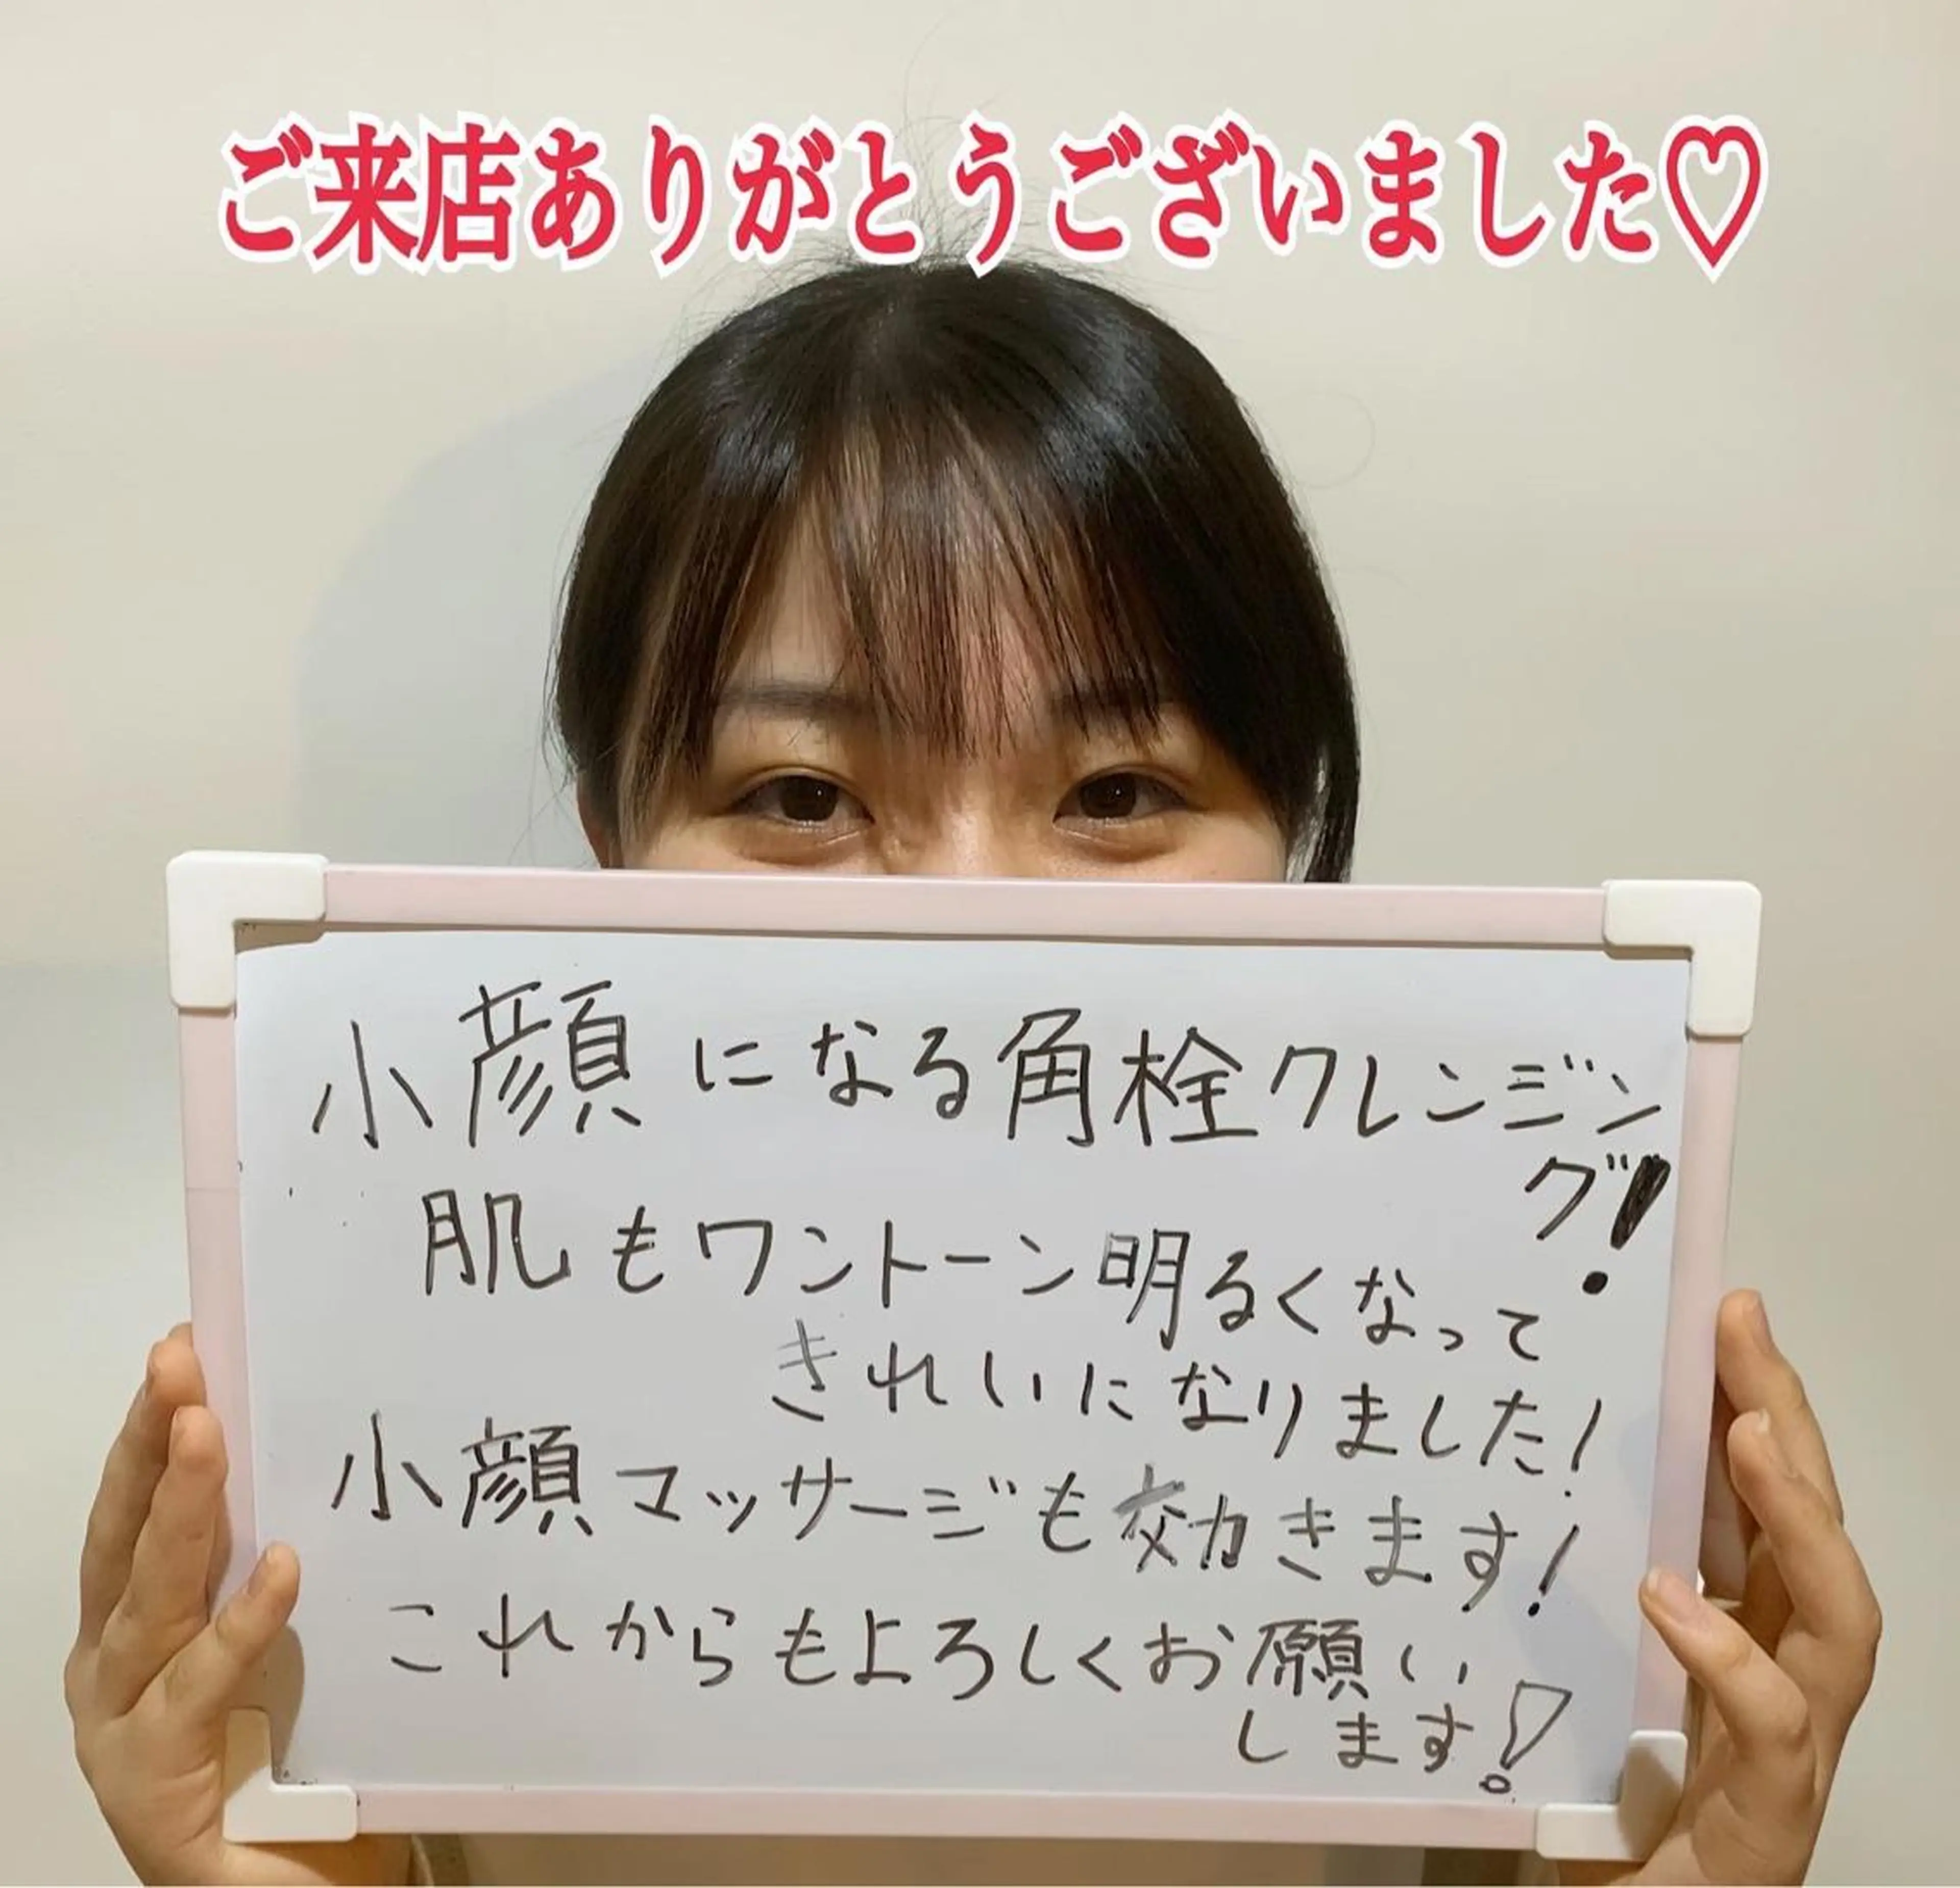 ご来店ありがとうございました♡
小顔になる角栓クレンジン
グ!
肌もワントーン明るくなって
きれいになりました!
小顔マッサージも効きます!
これからもよろしくお願い
します!